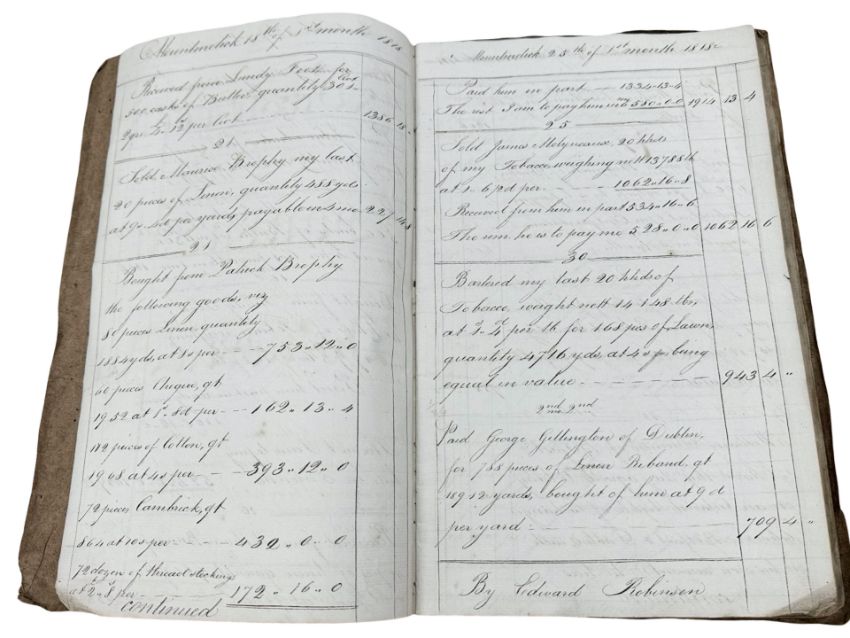 Mountmelick 18th of 1st month 1818
Received from Lundy Foot for
500 casks of Butter quantity 301 Cwt
2 qrs per Cwt 1356 18
21
Sold Maurice Brophy my last
20 pieces of Linen, quantity 488 yds
at 9s 4d per yard, payable in 4 mo 227 14 8
21
Bought from Patrick Brophy
the following goods, viz
80 pieces Linen quantity
1884 yds, at 8s per 753 " 12 " 0
60 pieces Cheque, qt
1952 at 1s 8d per 162 " 13 " 4
112 pieces of Cotton, qt
1968 at 4s per 393 " 12 " 0
72 pieces Cambrick, qt
864 at 10s per 432 " 0 " 0
72 dozen of thread stockings
at 2s 8 per 172 " 16 " 0
continued
Mountmelick 25th of 1st month 1818
Paid him in part 1334-13-4
The rest I am to pay him in 580-0-0 1914 13 4
25
Sold James Molyneaux, 20 hhds
of my Tobacco weighing nett 13788 lb
at 1s 6 1/2d per 1062 " 16 " 8
Received from him in part 534 " 16 " 6
The rem. he is to pay me 528 " 0 " 0 1062 16 6
30
Bartered my last 20 hhds of
Tobacco, waight nett 14148 lbs,
at 1s 4d per lb for 168 pcs of Lawn
quantity 4716 yds, at 4s p. being
equal in value 943 4 "
2nd mo 2nd
Paid George Gillington of Dublin,
for 788 pieces of Linen Riband, qt
18912 yards, bought of him at 9d
per yard 709 4 "
By Edward Robinson